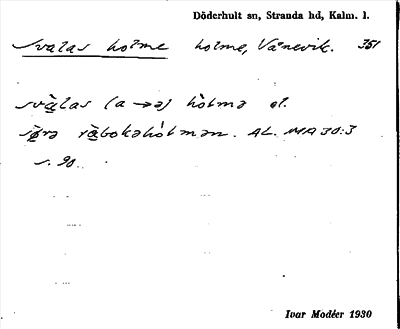 Döderhult sn, Stranda hd, Kalm. l.
Svalas holme holme, Vånevik. 351
svàlas (a→ə) hòlmə el.
sø̀rə ràbokəhòlmən. AL. MA 30:3
s. 90.
Ivar Modéer 1930